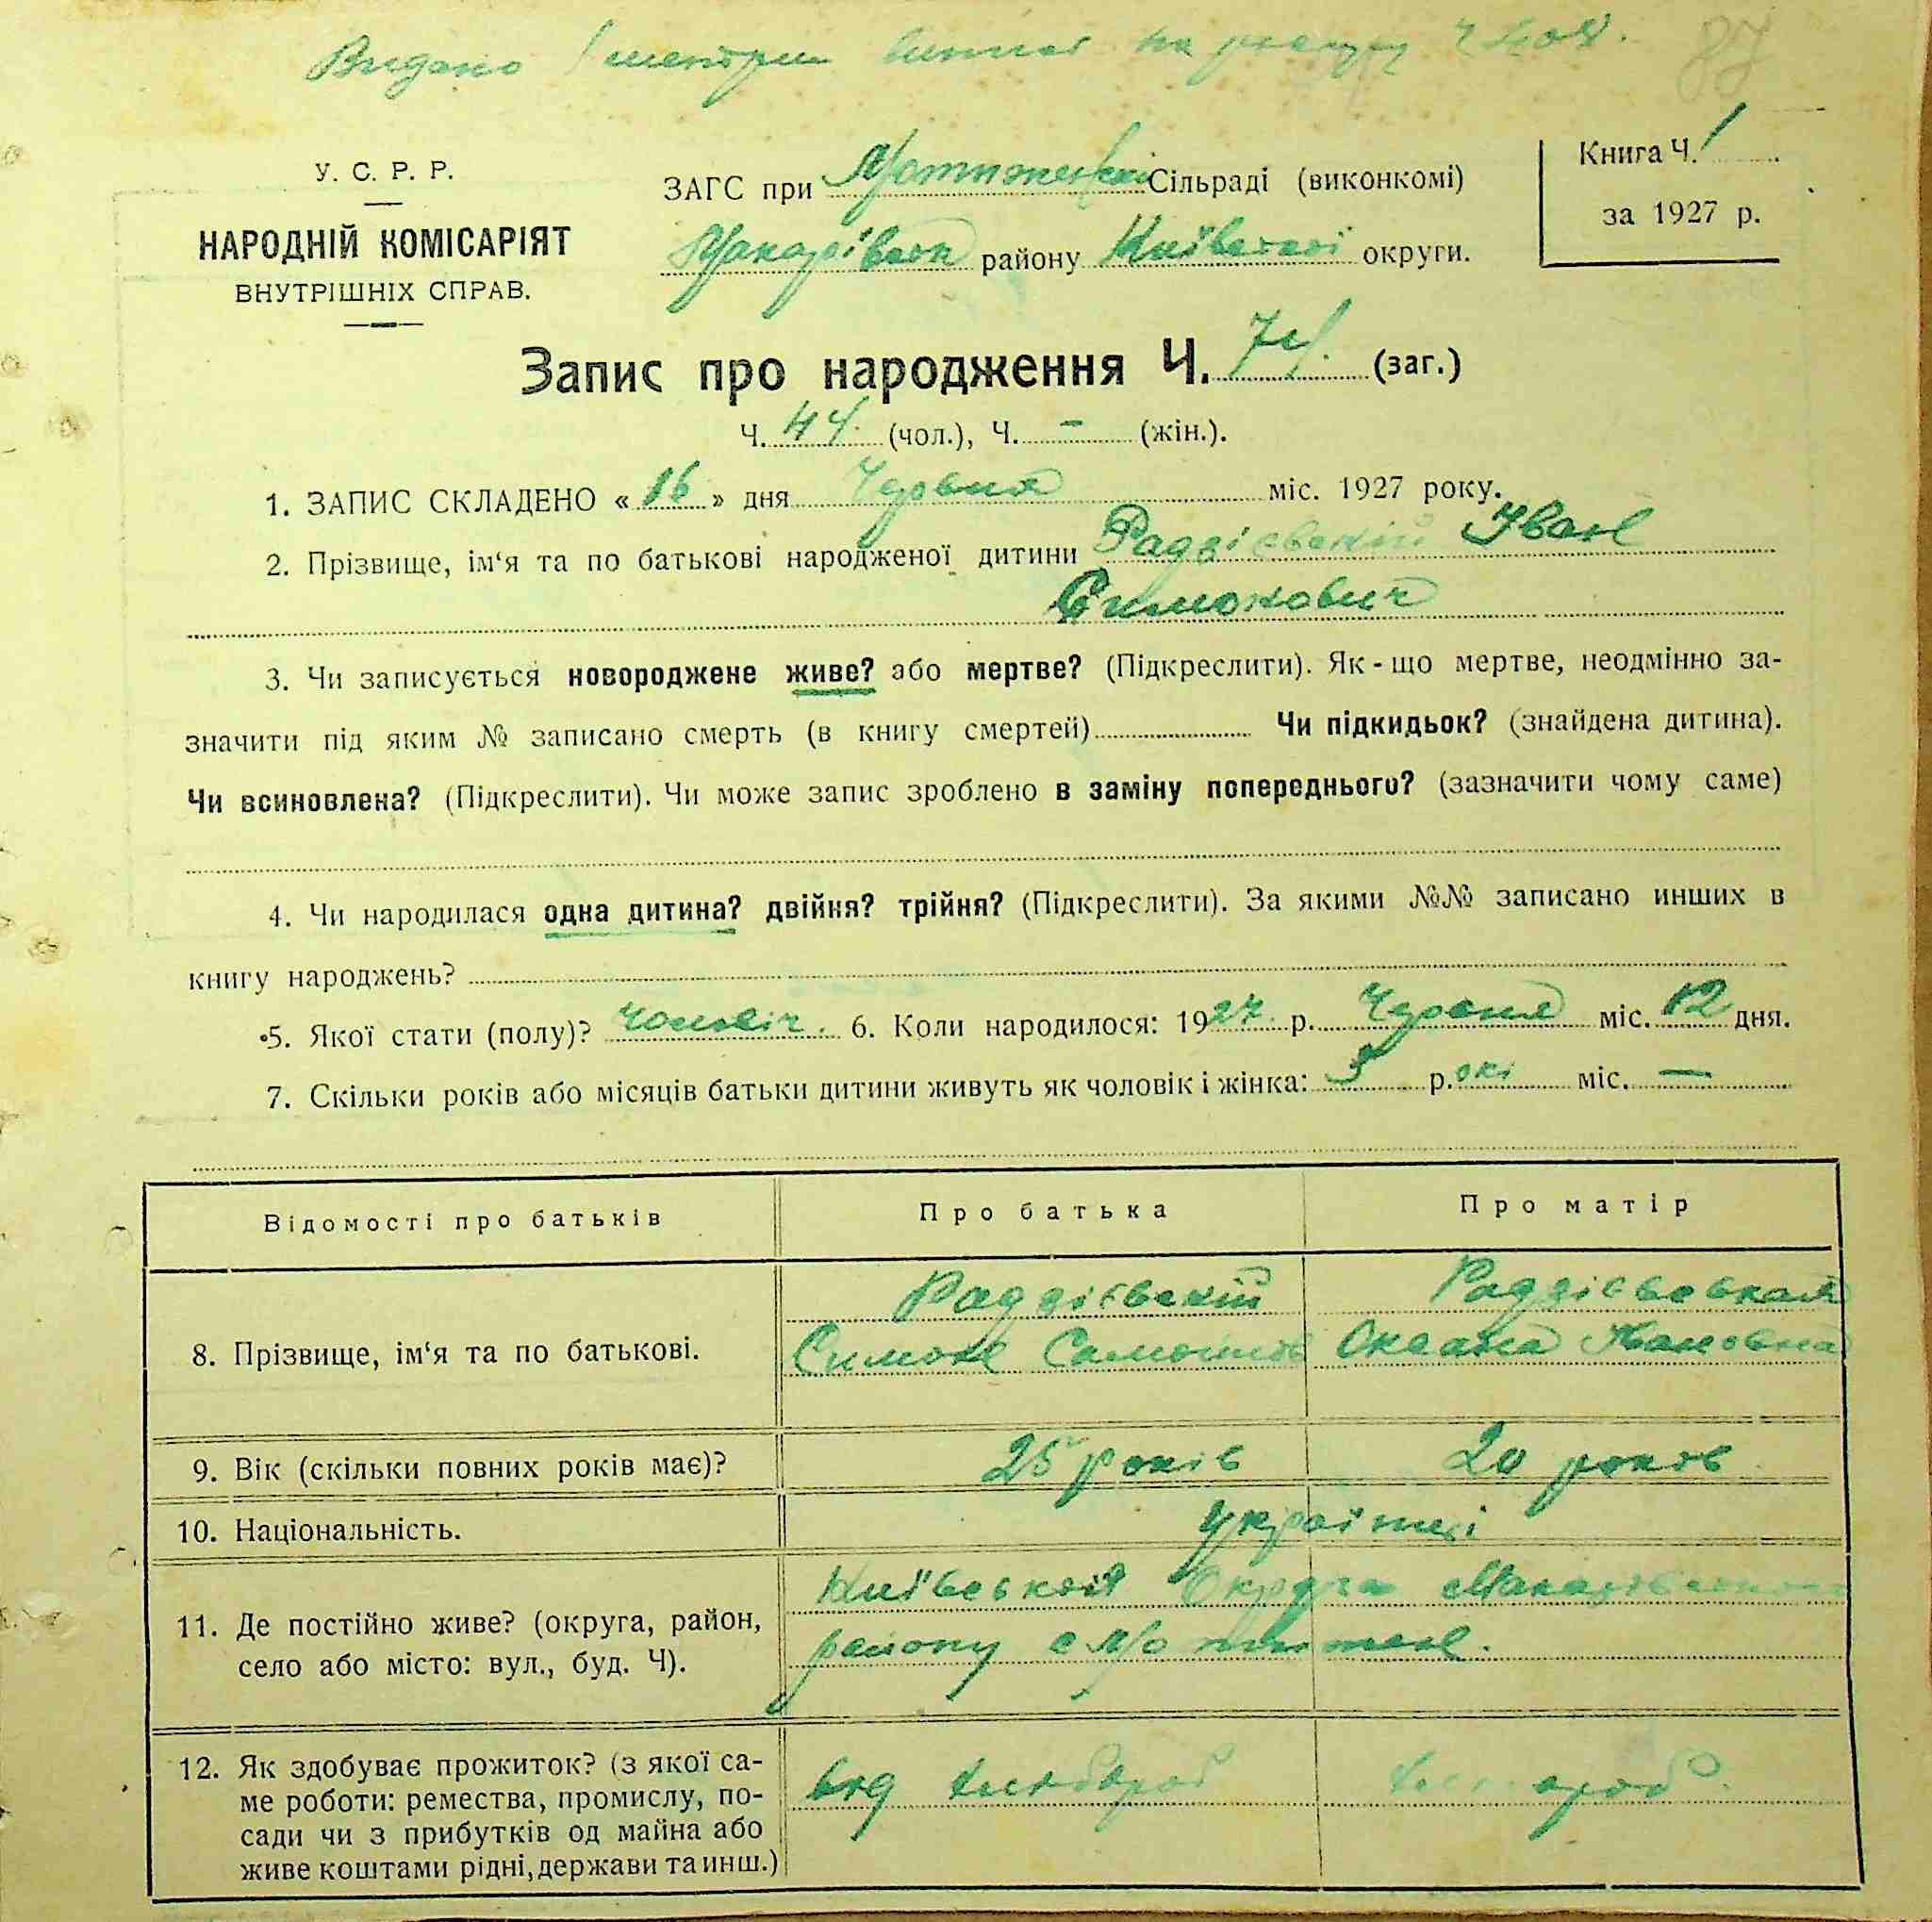 Видано метрич
87
У. С. Р. Р.
НАРОДНІЙ КОМІСАРІЯТ
ВНУТРІШНІХ СПРАВ.
ЗАГС при Мотижеській Сільраді (виконкомі)
Макарівськ району Київської округи.
Книга Ч. 1
за 1927 р.
Запис про народження Ч. 74 (заг.)
Ч. 44 (чол.), Ч. — (жін.).
1. ЗАПИС СКЛАДЕНО «16» дня Червня міс. 1927 року.
2. Прізвище, ім‘я та по батькові народженої дитини Радзієвскій Іван
Симонович
3. Чи записується новороджене живе? або мертве? (Підкреслити). Як-що мертве, неодмінно за-
значити під яким № записано смерть (в книгу смертей) Чи підкидьок? (знайдена дитина).
Чи всиновлена? (Підкреслити). Чи може запис зроблено в заміну попереднього? (зазначити чому саме)
4. Чи народилася одна дитина? двійня? трійня? (Підкреслити). За якими №№ записано инших в
книгу народжень?
5. Якої стати (полу)? чоловіч. 6. Коли народилося: 1927 р. Червня міс. 12 дня.
7. Скільки років або місяців батьки дитини живуть як чоловік і жінка: 3 р.окі міс. —
Відомості про батьків
Про батька
Про матір
8. Прізвище, ім‘я та по батькові.
Радзієвскій
Симон
Радзієвовкая
Оксана Івановна
9. Вік (скільки повних років має)?
25 років
20 років
10. Національність.
українці
11. Де постійно живе? (округа, район,
село або місто: вул., буд. Ч).
Київськой Округа
району с Мотижен.
12. Як здобуває прожиток? (з якої са-
ме роботи: ремества, промислу, по-
сади чи з прибутків од майна або
живе коштами рідні, держави та инш.)
від хлібороб